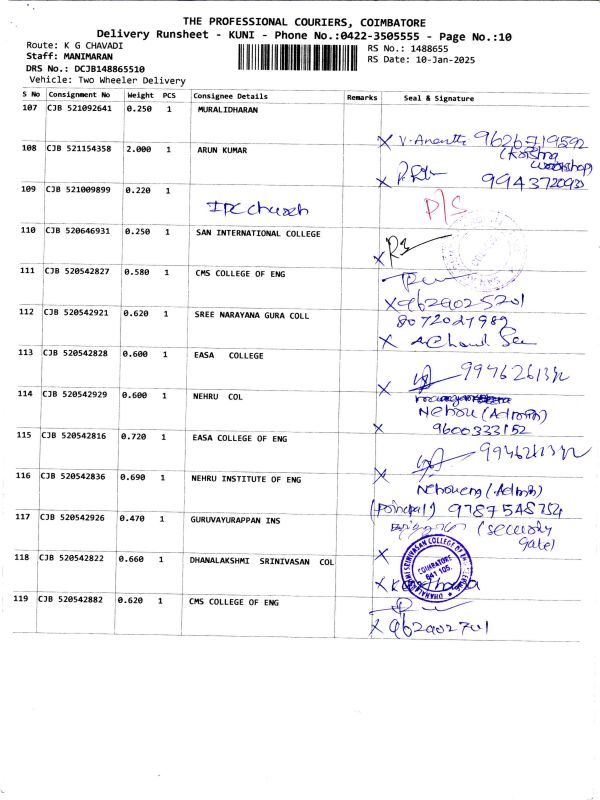 THE PROFESSIONAL COURIERS, COIMBATORE
Delivery Runsheet - KUNI - Phone No.:0422-3505555 - Page No.:10
Route: K G CHAVADI
RS No.: 1488655
Staff: MANIMARAN
RS Date: 10-Jan-2025
DRS No.: DCJB148865510
Vehicle: Two Wheeler Delivery
S No Consignment No Weight PCS Consignee Details Remarks Seal & Signature
107 CJB 521092641 0.250 1 MURALIDHARAN
X V. Ananth 9626719592
108 CJB 521154358 2.000 1 ARUN KUMAR
(Krishna
workshop)
X
109 CJB 521009899 0.220 1
IPC church
P/S
110 CJB 520646931 0.250 1 SAN INTERNATIONAL COLLEGE
X
111 CJB 520542827 0.580 1 CMS COLLEGE OF ENG
X 9629025201
112 CJB 520542921 0.620 1 SREE NARAYANA GURA COLL
8072027989
X
113 CJB 520542828 0.600 1 EASA COLLEGE
X
114 CJB 520542929 0.600 1 NEHRU COL
Nehru (Admin)
X 9600333152
115 CJB 520542816 0.720 1 EASA COLLEGE OF ENG
X
116 CJB 520542836 0.690 1 NEHRU INSTITUTE OF ENG
(Admin)
(principal) 9787548754
117 CJB 520542926 0.470 1 GURUVAYURAPPAN INS
(security
Gate)
X
118 CJB 520542822 0.660 1 DHANALAKSHMI SRINIVASAN COL
COIMBATORE
641 105.
X
119 CJB 520542882 0.620 1 CMS COLLEGE OF ENG
X 962902701